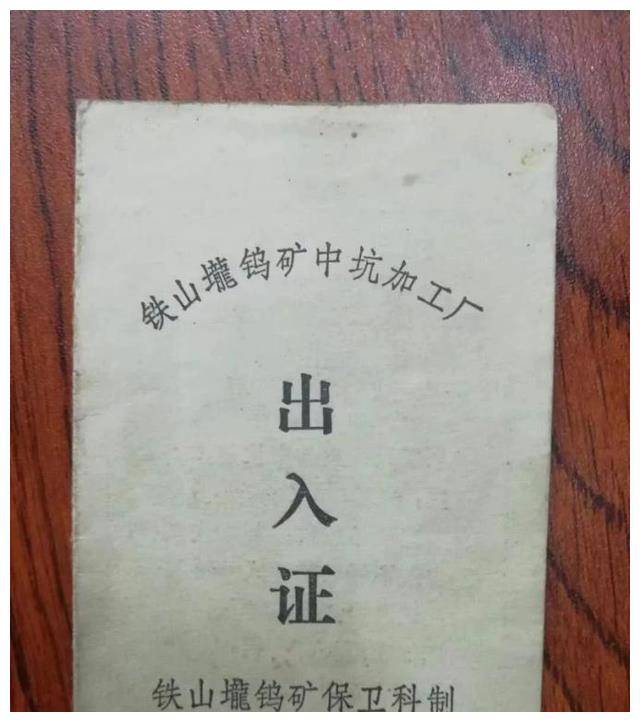 铁山壠钨矿中坑加工厂
出
入
证
铁山壠钨矿保卫科制